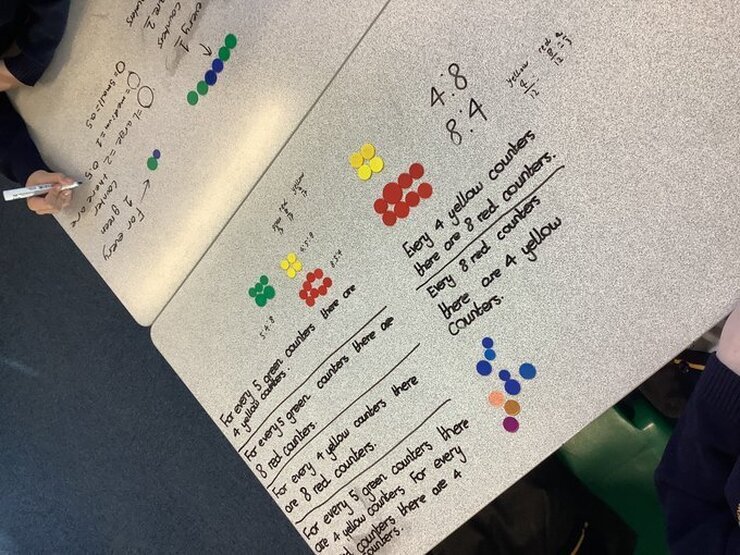 4:8
8:4
yellow
4
12
red
8
12
Every 4 yellow counters
there are 8 red counters.
Every 8 red counters
there are 4 yellow
counters.
4:5:8
8:5:4
5:4:8
For every 5 green counters there are
4 yellow counters.
For every 5 green counters there are
8 red counters.
For every 4 yellow counters there
are 8 red counters.
For every 5 green counters there
are 4 yellow counters. For every
counters there are 4
counters.
every 1
counters
are 2
O = Large = 2
O = medium = 1
O = small = 0.5
For every
1 green
counter
there are
0.5